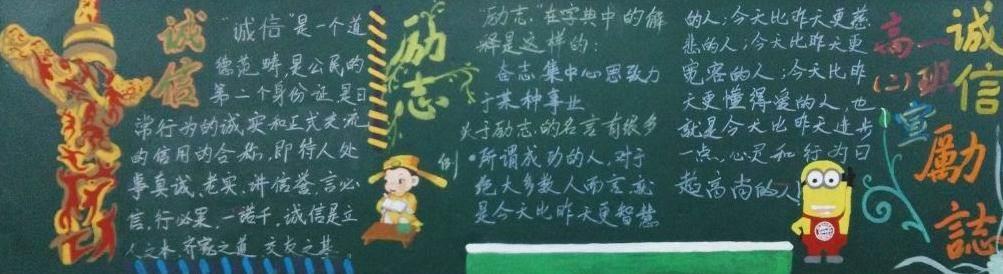 诚信
"诚信"是一个道
德范畴,是公民的
第二个身份证,是日
常行为的诚,实和正式交流
的信用的合称,即待人处
事真诚、老实、讲信誉,言必
信,行必果,一诺千,诚信是立
人之本,齐家之道,交友之基,
励志
"励志"在字典中的解
释是这样的:
奋志,集中心思致力
于某种事业
关于励志,的名言有很多
例
•所谓成功的人,对于
绝大多数人而言,
是今天比昨天更智慧
的人;今天比昨天更慈
悲的人;今天比昨天更
宽容的人;今天比昨
天更懂得爱的人,也
就是今天比昨天进步
一点,心灵和行为日
趋高尚的人
高一
(二)班
宣
诚信
勵誌